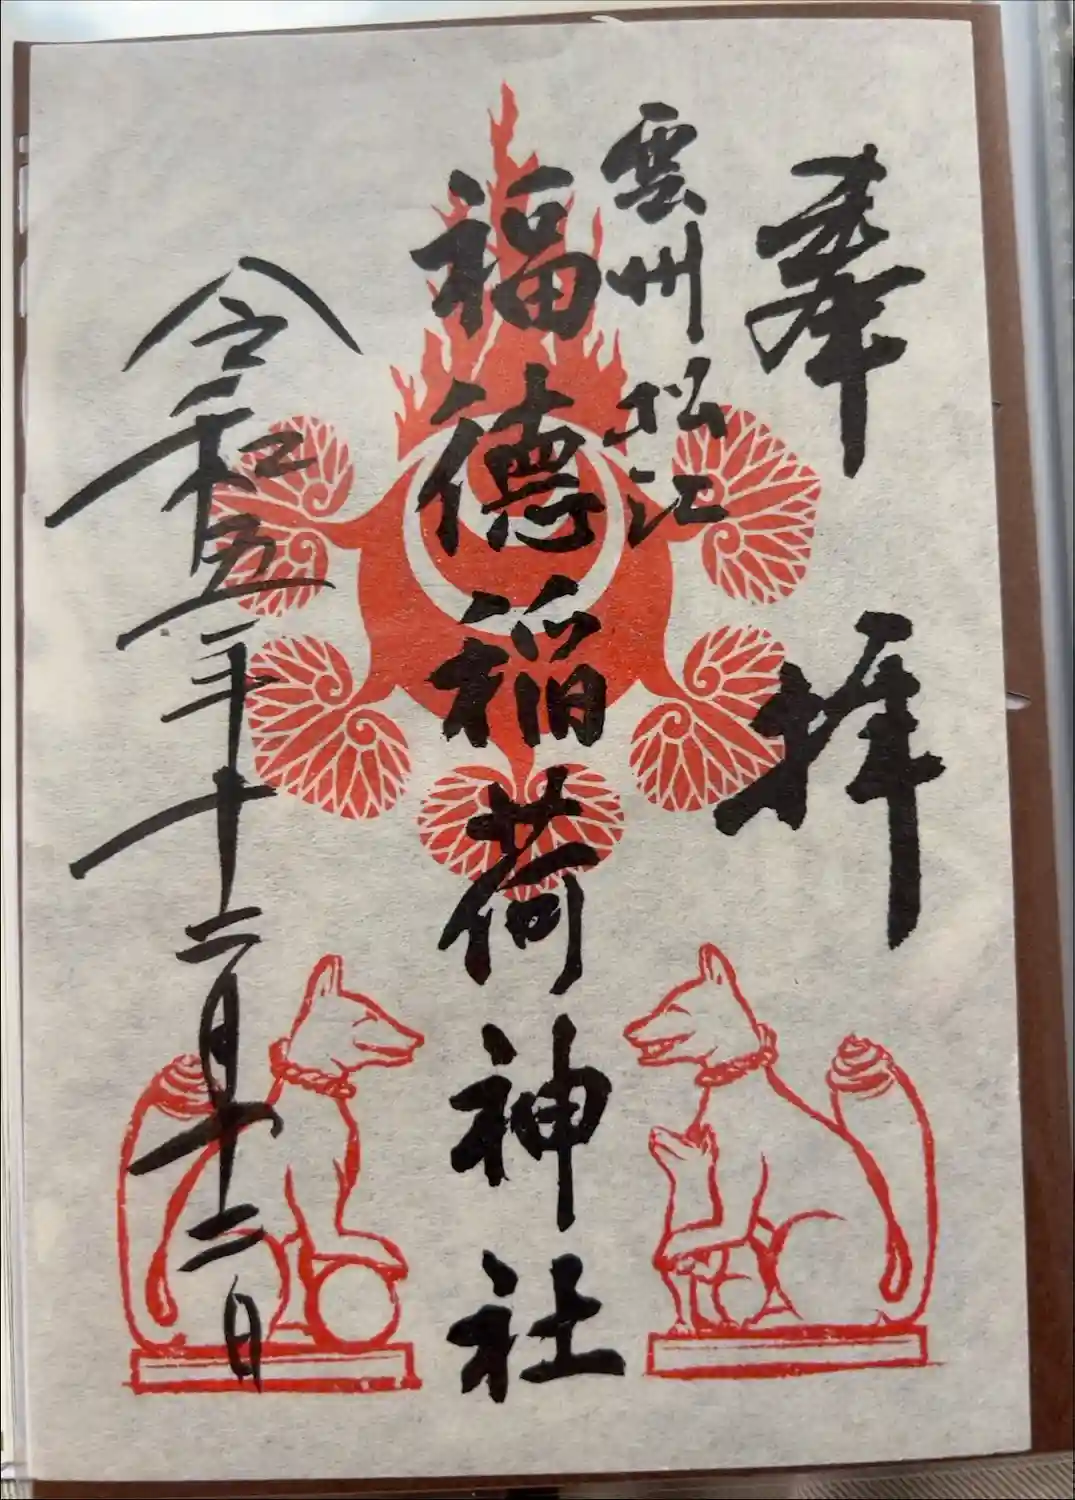 奉拝
雲州松江
福徳稲荷神社
令和五年十二月十二日